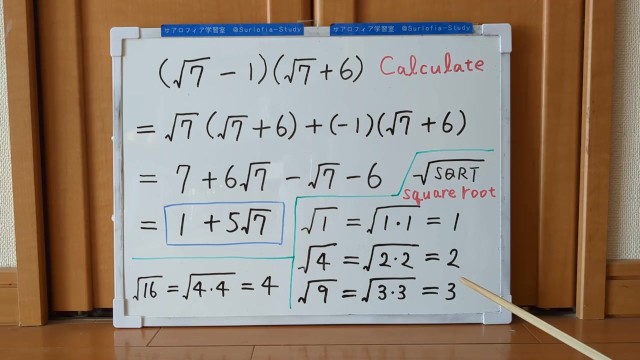 サアロフィア学習室 @Surlofia-Study サアロフィア学習室 @Surlofia-Study
(√7 − 1)(√7 + 6) Calculate
= √7 (√7 + 6) + (−1)(√7 + 6)
= 7 + 6√7 − √7 − 6
= 1 + 5√7
√SQRT
square root
√1 = √1·1 = 1
√4 = √2·2 = 2
√9 = √3·3 = 3
√16 = √4·4 = 4